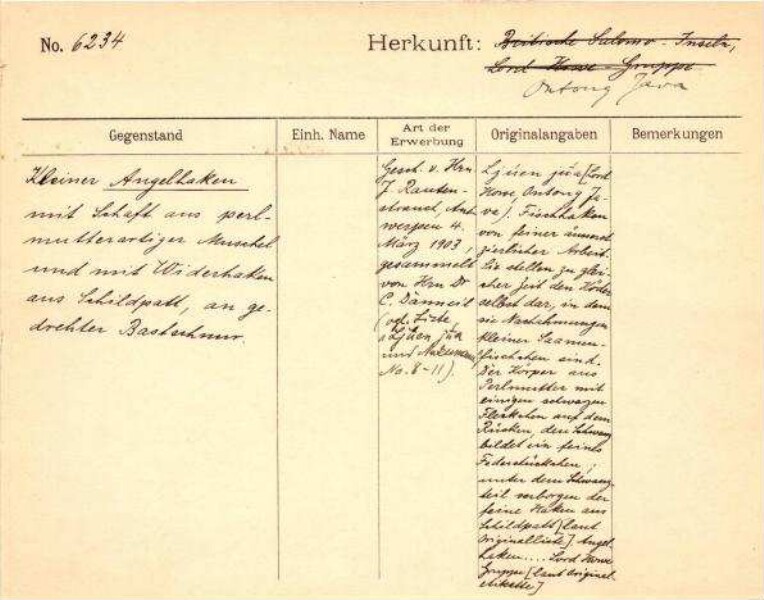 No. 6234
Herkunft: Britische Salomo-Inseln,
Lord Howe-Gruppe
Ontong Java
Gegenstand
Einh. Name
Art der
Erwerbung
Originalangaben
Bemerkungen
Kleiner Angelhaken
mit Schaft aus perl-
mutterartiger Muschel
und mit Widerhaken
aus Schildpatt, an ge-
drehter Bastschnur.
Gesch. v. Hrn
J. Rauten-
strauch, Ant-
werpen 4.
März 1903,
gesammelt
von Hrn Dr
C. Dänneil
(vgl. Liste
Ljüen jüa
und
No. 8-11).
Ljüen jüa [Lord
Howe, Ontong Ja-
va]. Fischhaken
von feiner äusserst
zierlicher Arbeit.
Sie stellen zu glei-
cher Zeit den Köder
selbst dar, in dem
sie Nachahmungen
kleiner
fischchen sind.
Der Körper aus
Perlmutter mit
einigen schwarzen
Fleckchen auf dem
Rücken, den Schwanz
bildet ein feines
Federstückchen,
unter dem Schwanz-
teil verborgen der
feine Haken aus
Schildpatt [laut
Originalliste] Angel-
haken.... Lord Howe
Gruppe [laut Original-
etikette]